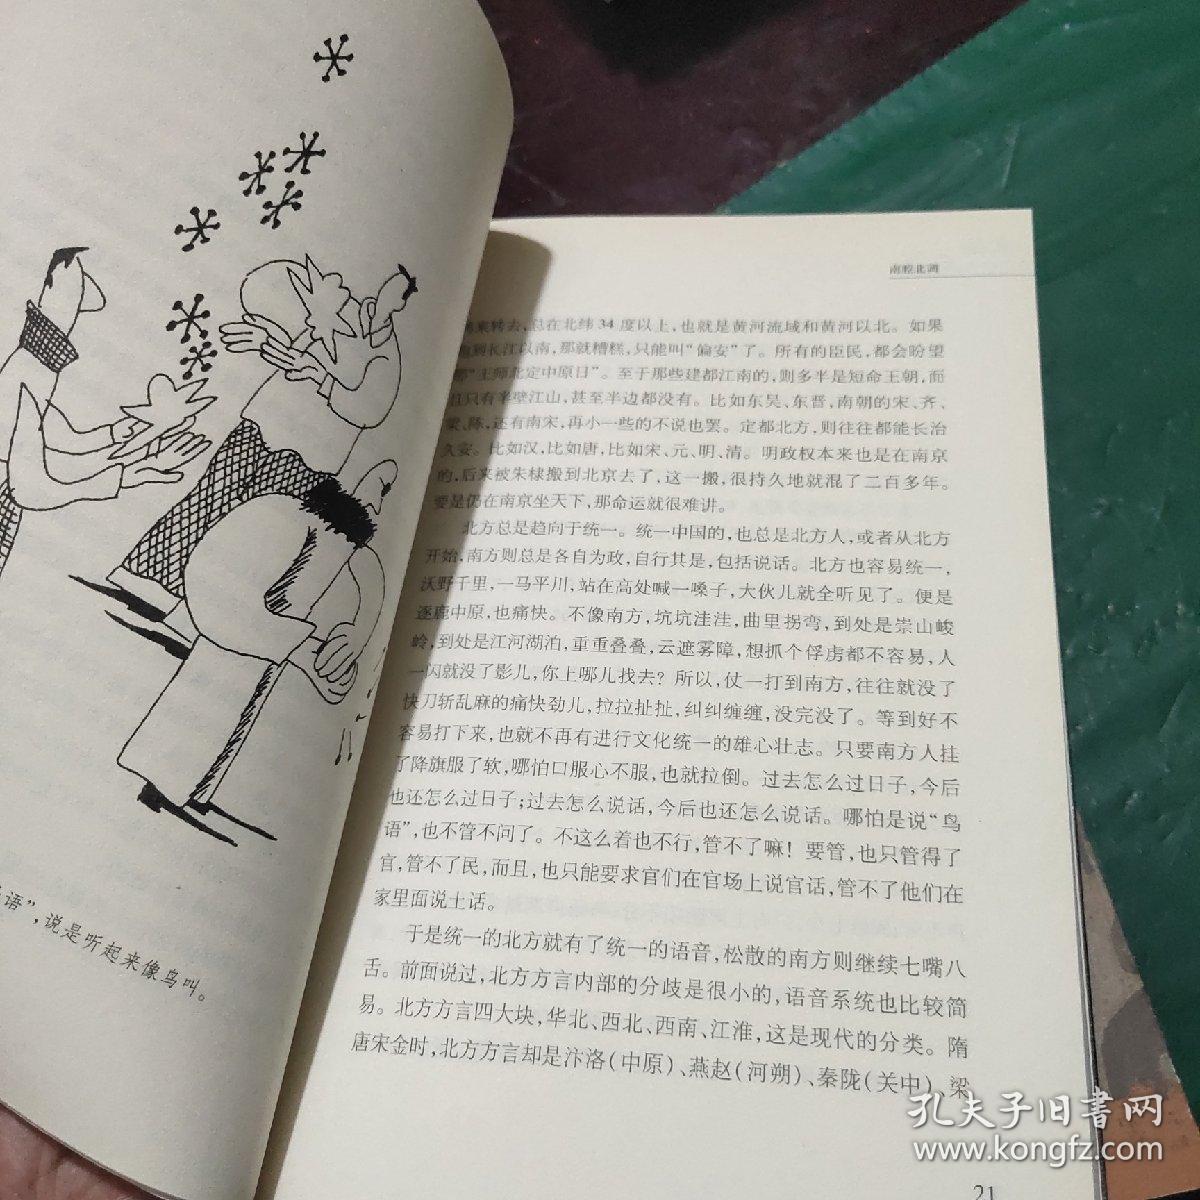 语”，说是听起来像鸟叫。
南腔北调
来转去，总在北纬 34 度以上，也就是黄河流域和黄河以北。如果
跑到长江以南，那就糟糕，只能叫“偏安”了。所有的臣民，都会盼望
那“王师北定中原日”。至于那些建都江南的，则多半是短命王朝，而
且只有半壁江山，甚至半边都没有。比如东吴、东晋，南朝的宋、齐、
梁、陈，还有南宋，再小一些的不说也罢。定都北方，则往往都能长治
久安。比如汉，比如唐，比如宋、元、明、清。明政权本来也是在南京
的，后来被朱棣搬到北京去了，这一搬，很持久地就混了二百多年。
要是仍在南京坐天下，那命运就很难讲。
北方总是趋向于统一。统一中国的，也总是北方人，或者从北方
开始，南方则总是各自为政，自行其是，包括说话。北方也容易统一，
沃野千里，一马平川，站在高处喊一嗓子，大伙儿就全听见了。便是
逐鹿中原，也痛快。不像南方，坑坑洼洼，曲里拐弯，到处是崇山峻
岭，到处是江河湖泊，重重叠叠，云遮雾障，想抓个俘虏都不容易，人
一闪就没了影儿，你上哪儿找去？所以，仗一打到南方，往往就没了
快刀斩乱麻的痛快劲儿，拉拉扯扯，纠纠缠缠，没完没了。等到好不
容易打下来，也就不再有进行文化统一的雄心壮志。只要南方人挂
了降旗服了软，哪怕口服心不服，也就拉倒。过去怎么过日子，今后
也还怎么过日子；过去怎么说话，今后也还怎么说话。哪怕是说“鸟
语”，也不管不问了。不这么着也不行，管不了嘛！要管，也只管得了
官，管不了民，而且，也只能要求官们在官场上说官话，管不了他们在
家里面说土话。
于是统一的北方就有了统一的语音，松散的南方则继续七嘴八
舌。前面说过，北方方言内部的分歧是很小的，语音系统也比较简
易。北方方言四大块，华北、西北、西南、江淮，这是现代的分类。隋
唐宋金时，北方方言却是汴洛（中原）、燕赵（河朔）、秦陇（关中）、梁
21
孔夫子旧书网
www.kongfz.com